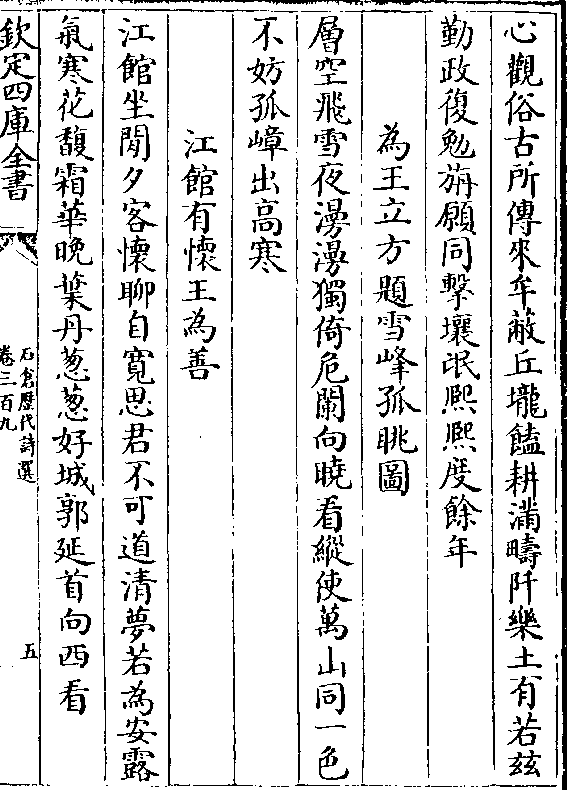 心觀俗古所傳來牟蔽丘壠饁耕滿疇阡樂土有若茲
勤政復勉旃願同擊壤氓熙熙度餘年
為王立方題雪峰孤眺圖
層空飛雪夜漫漫獨倚危闌向曉看縱使萬山同一色
不妨孤嶂出高寒
江館有懷王為善
江館坐閒夕客懷聊自寬思君不可道清夢若為安露
氣寒花馥霜華晚葉丹葱葱好城郭延首向西看
欽定四庫全書
石倉歷代詩選
卷三百九
五